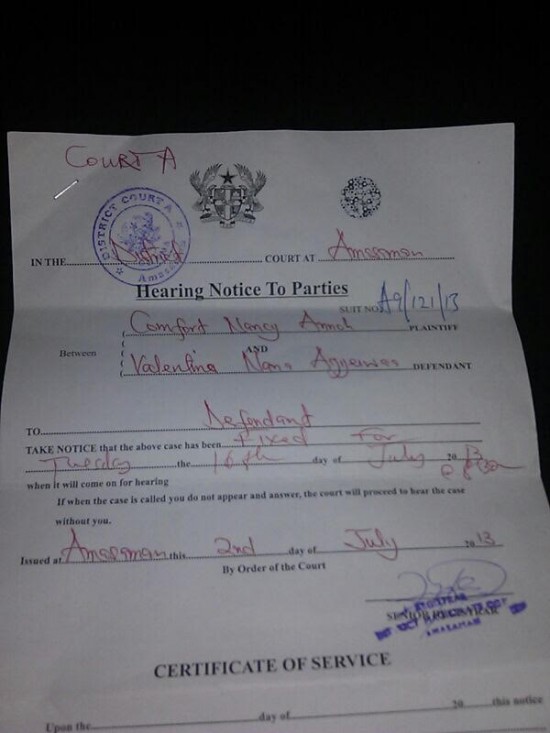 COURT A
DISTRICT COURT A
IN THE District COURT AT Amasaman
Hearing Notice To Parties
SUIT NO. A9/121/13
Comfort Nancy PLAINTIFF
Between AND
Valentina Nana DEFENDANT
TO Defendant
TAKE NOTICE that the above case has been Fixed For
Tuesday the 16th day of July 2013
when it will come on for hearing
If when the case is called you do not appear and answer, the court will proceed to hear the case
without you.
Issued at Amasaman this 2nd day of July 2013
By Order of the Court
SENIOR REGISTRAR
AMASAMAN
CERTIFICATE OF SERVICE
Upon the day of 20 this notice